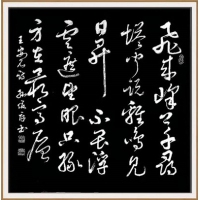 飛來峰上千尋
塔聞說雞鳴見
日昇不畏浮
雲遮望眼只緣
身在最高層
王安石詩